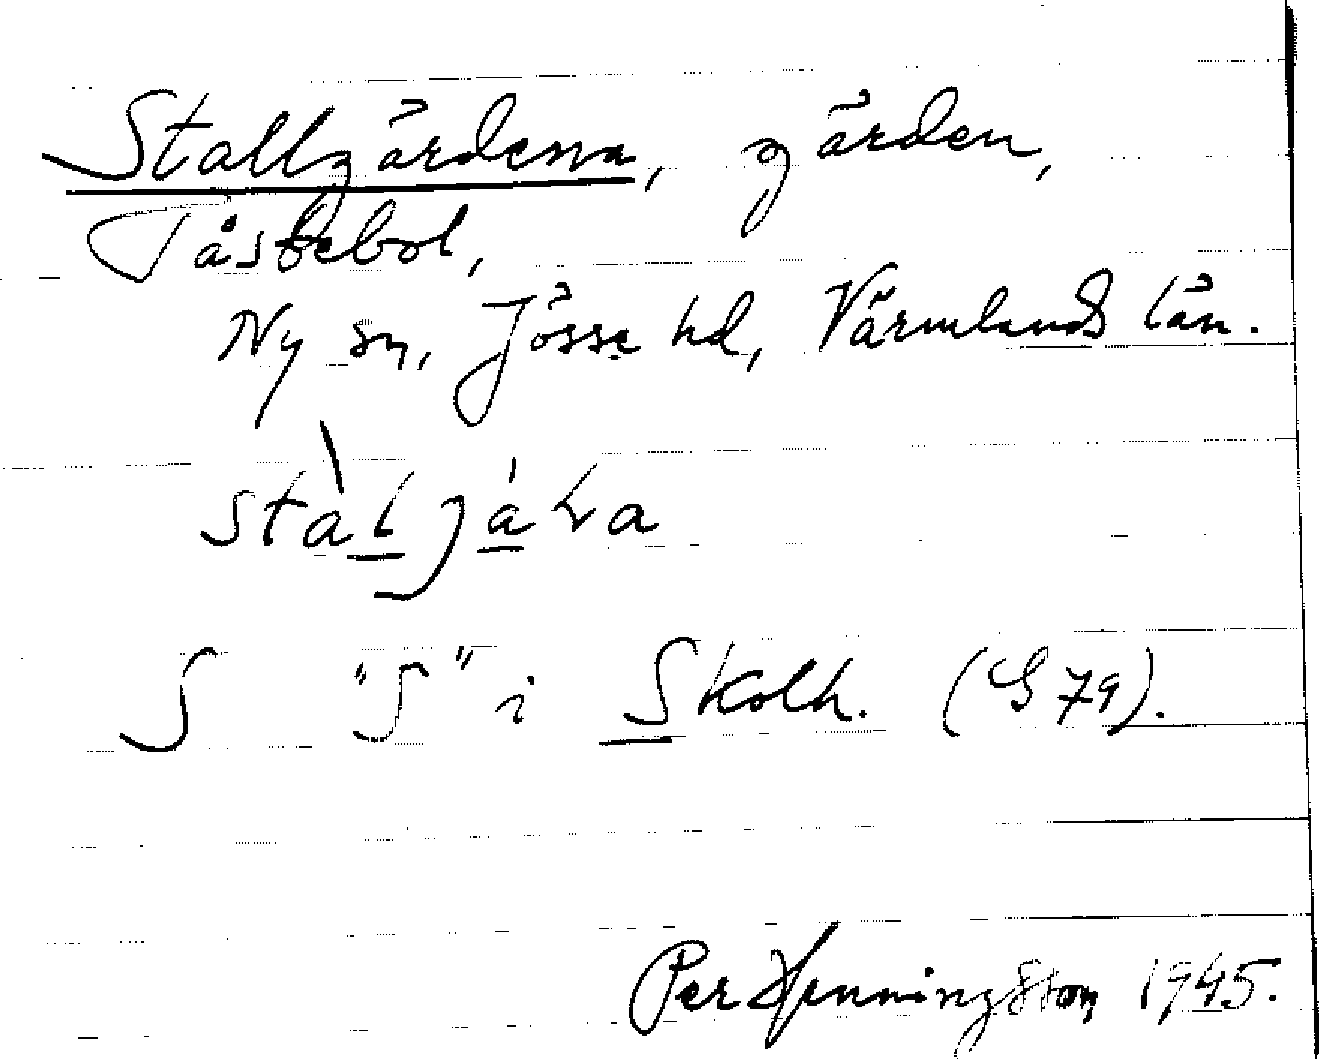 Stallgärdena, gärden,
Tåstebol,
Ny sn, Jösse hd, Värmlands län.
stàljáɽa
S "S" i Skolh. (G 79).
Per Henningsson 1945.